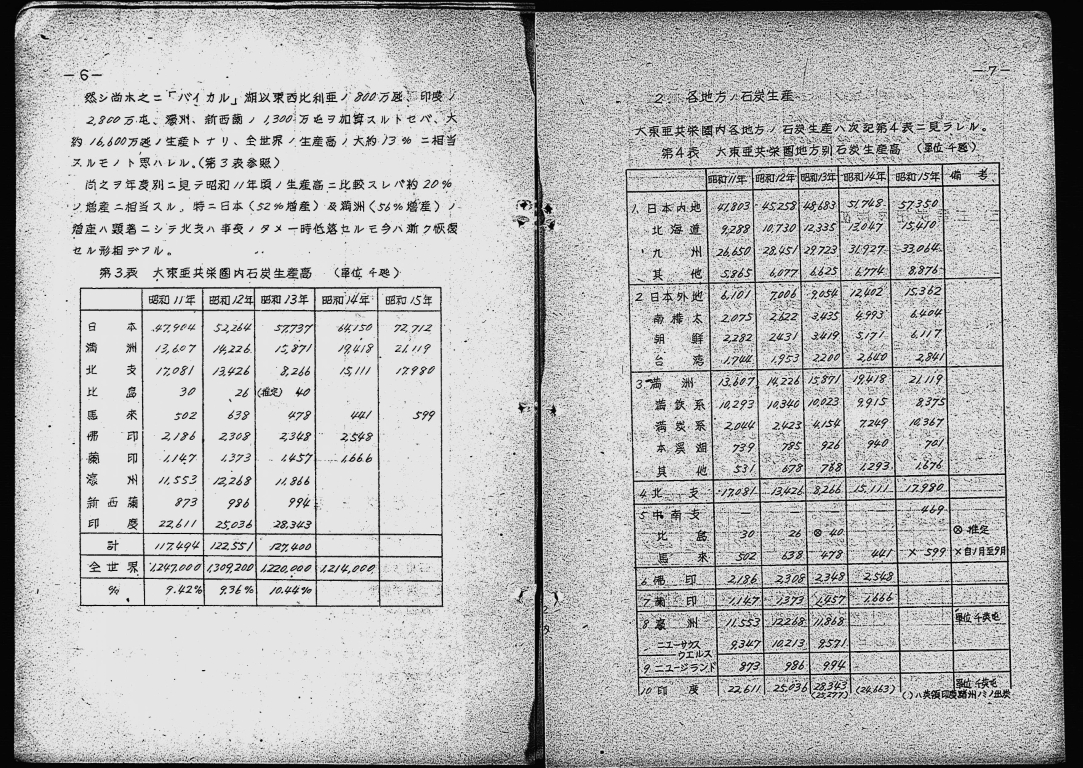 —6—
然シ尚木之ニ「バイカル」湖以東西比利亜ノ800万瓲、印度ノ
2,800万屯、濠州、新西蘭ノ1,300万屯ヲ加算スルトセバ、大
約16,600万瓲ノ生産トナリ、全世界ノ生産高ノ大約13%ニ相当
スルモノト思ハレル。(第3表参照)
尚之ヲ年度別ニ見テ昭和11年頃ノ生産高ニ比較スレバ約20%
ノ増産ニ相当スル。特ニ日本(52%増産)及満洲(56%増産)ノ
増産ハ顕著ニシテ北支ハ事変ノタメ一時低落セルモ今ハ漸ク恢復
セル形相デアル。
第3表 大東亜共栄圏内石炭生産高 (単位千瓲)
昭和11年 昭和12年 昭和13年 昭和14年 昭和15年
日本 47,904 52,264 57,737 64,150 72,712
満洲 13,607 14,226 15,871 19,418 21,119
北支 17,081 13,426 8,266 15,111 17,980
比島 30 26 (推定) 40
馬來 502 638 478 441 599
佛印 2,186 2,308 2,348 2,548
蘭印 1,147 1,373 1,457 1,666
濠州 11,553 12,268 11,866
新西蘭 873 986 994
印度 22,611 25,036 28,343
計 117,494 122,551 127,400
全世界 1,247,000 1,309,200 1,220,000 1,214,000
% 9.42% 9.36% 10.44%
—7—
2. 各地方ノ石炭生産
大東亜共栄圏内各地方ノ石炭生産ハ次記第4表ニ見ラレル。
第4表 大東亜共栄圏地方別石炭生産高 (単位千瓲)
昭和11年 昭和12年 昭和13年 昭和14年 昭和15年 備考
1. 日本内地 41,803 45,258 48,683 51,748 57,350
北海道 9,288 10,730 12,335 13,047 15,410
九州 26,650 28,451 29,723 31,927 33,064
其他 5,865 6,077 6,625 6,774 8,876
2. 日本外地 6,101 7,006 9,054 12,402 15,362
南樺太 2,075 2,622 3,435 4,993 6,404
朝鮮 2,282 2,431 3,419 5,171 6,117
台湾 1,744 1,953 2,200 2,640 2,841
3. 満洲 13,607 14,226 15,871 19,418 21,119
満鉄系 10,293 10,340 10,023 9,915 8,375
満炭系 2,044 2,423 4,154 7,249 10,367
本溪湖 739 785 926 940 701
其他 531 678 768 1,293 1,676
4. 北支 17,081 13,426 8,266 15,111 17,980
5. 中南支 — — — — 469
比島 30 26 ⊗ 40 ⊗ 推定
馬來 502 638 478 441 × 599 ×自1月至9月
6. 佛印 2,186 2,308 2,348 2,548
7. 蘭印 1,147 1,373 1,457 1,666
8. 濠洲 11,553 12,268 11,868 単位千英屯
ニユーサウスウエルス 9,347 10,213 9,571
9. ニユージランド 873 986 994
10. 印度 22,611 25,036 28,343 (24,663) 単位千英屯
(25,277) ( )ハ英領印度諸州ノミノ出炭